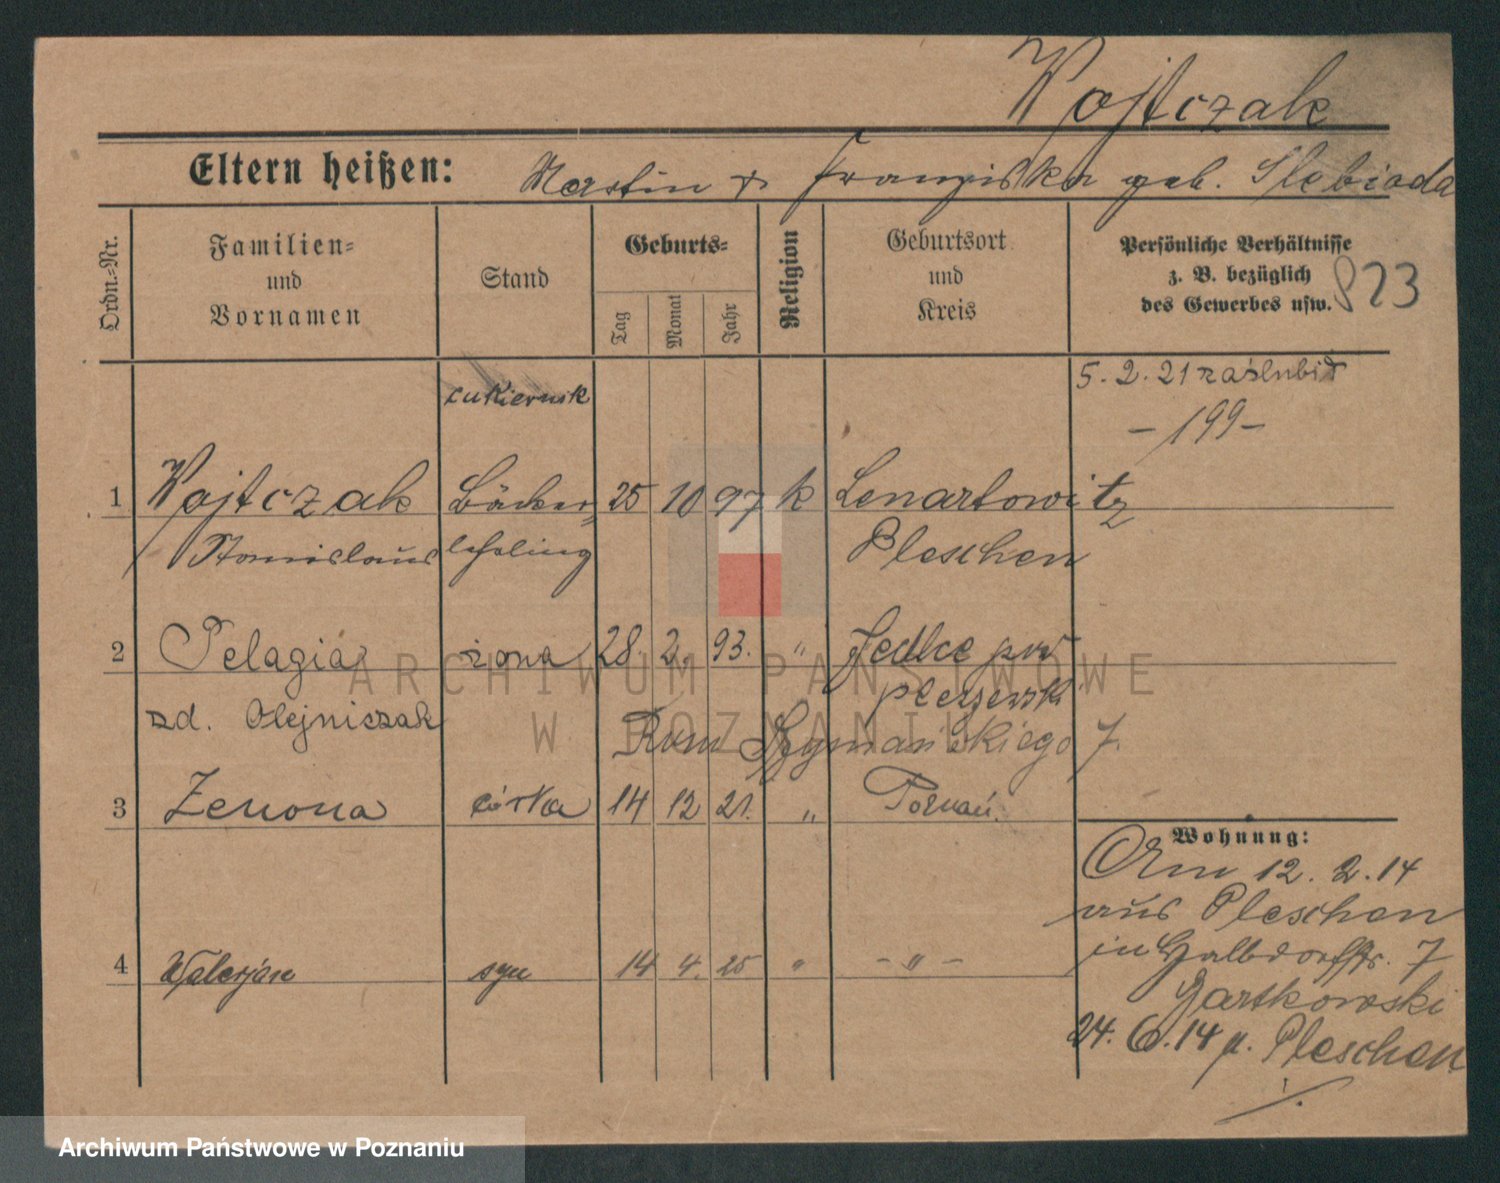 Wojtczak
Eltern heißen: Martin & Franziska geb. Slobioda
Ordn.=Nr.
Familien=
und
Vornamen
Stand
Geburts=
Tag
Monat
Jahr
Religion
Geburtsort
und
Kreis
Persönliche Verhältnisse
z. B. bezüglich
des Gewerbes usw.
823
cukiernik
5. 2. 21 zaślubił
- 199 -
1 Wojtczak Bäcker= 25 10 97 k Lenartowitz
Stanislaus lehrling Pleschen
2 Pelagia żona 28. 2. 93. " Jedlec pow
zd. Olejniczak pleszewski
Rom Szymańskiego 7.
3 Zenona córka 14 12 21. " Poznań.
4 Walerjan syn 14 4. 25 " - " -
Wohnung:
Am 12. 2. 14
aus Pleschen
in Halbdorffstr. 7
Bartkowski
24. 6. 14 n. Pleschen
ARCHIWUM PAŃSTWOWE
W POZNANIU
Archiwum Państwowe w Poznaniu